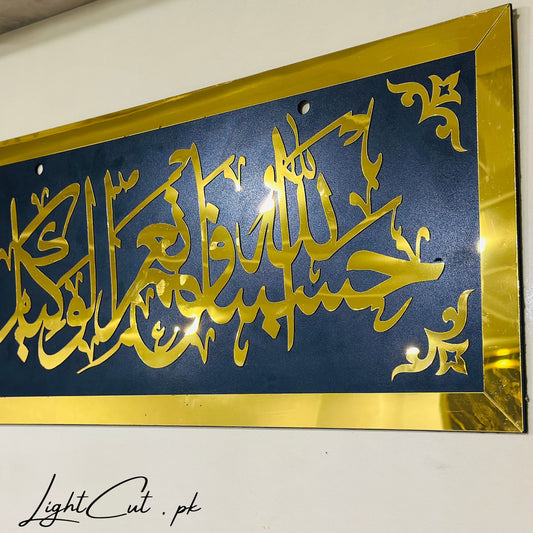 حسبنا الله ونعم الوكيل
LightCut.pk